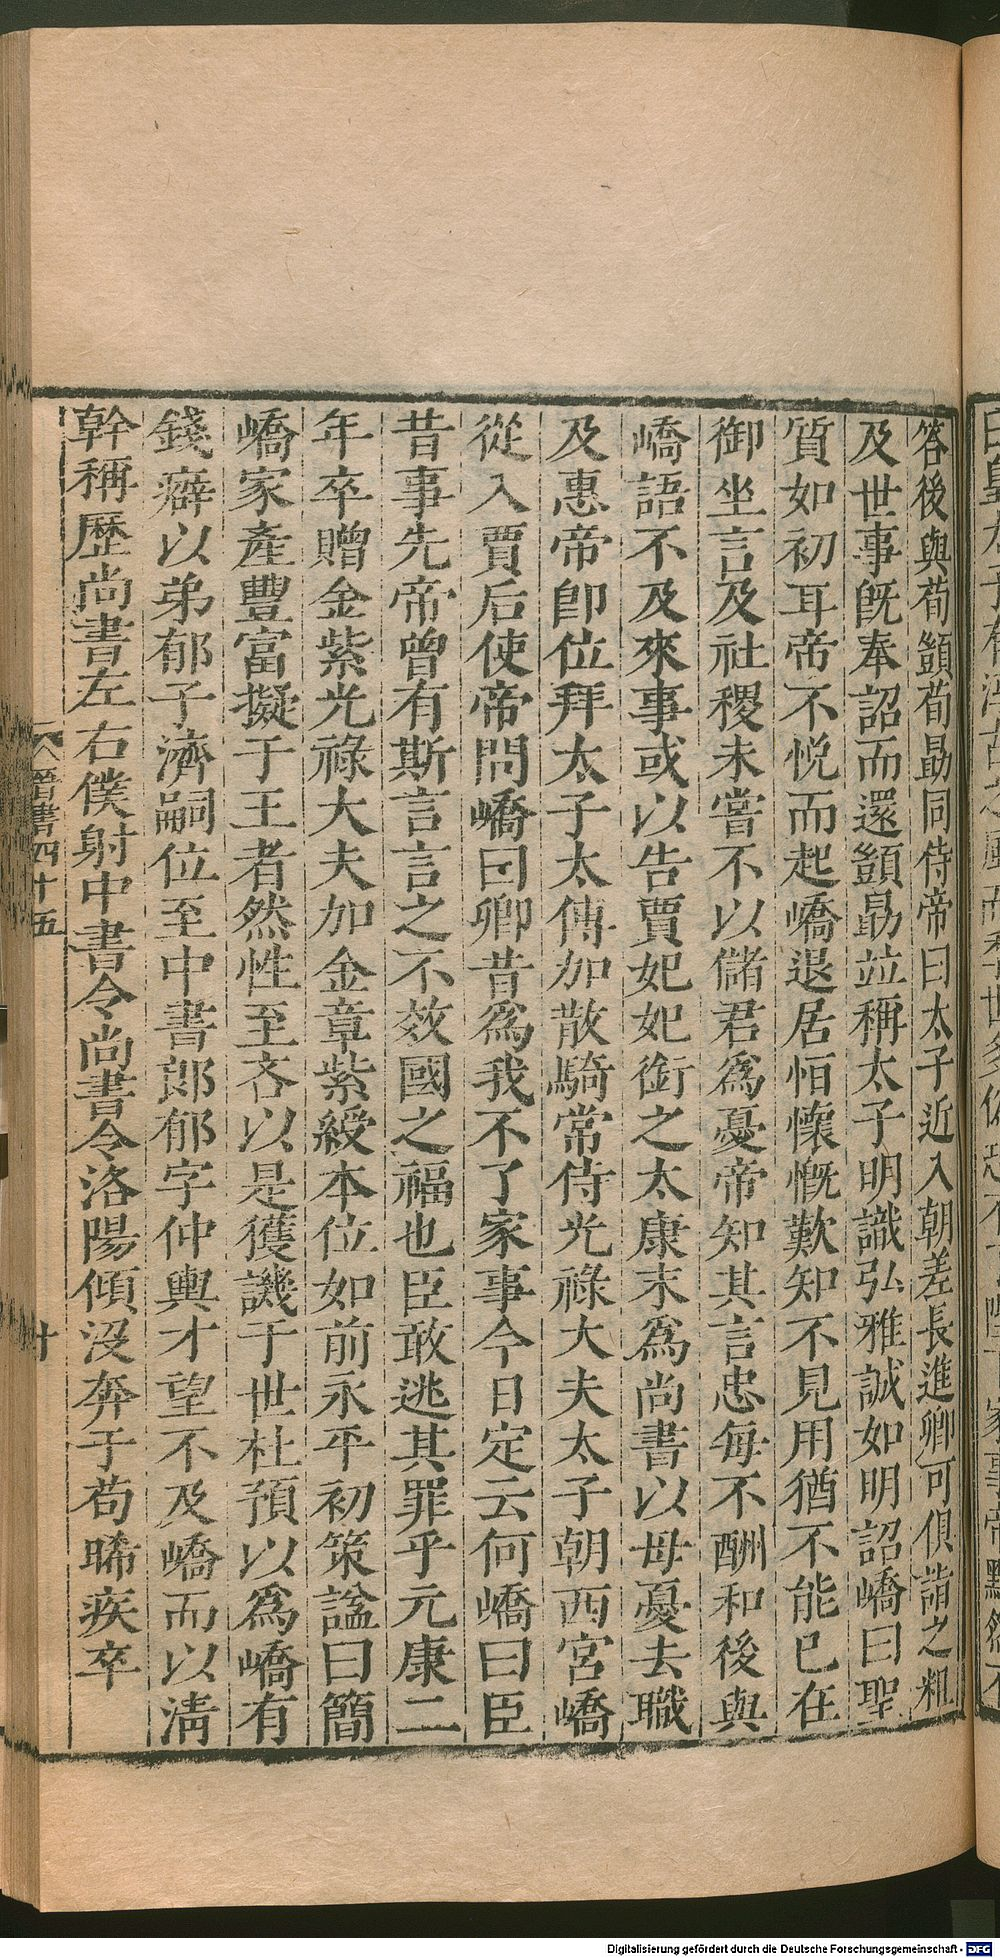 答後與荀顗荀勗同侍帝曰太子近入朝差長進卿可俱詣之粗
及世事旣奉詔而還顗勗竝稱太子明識弘雅誠如明詔嶠曰聖
質如初耳帝不悅而起嶠退居恒懷慨歎知不見用猶不能已在
御坐言及社稷未嘗不以儲君爲憂帝知其言忠每不酬和後與
嶠語不及來事或以告賈妃妃銜之太康末爲尚書以母憂去職
及惠帝卽位拜太子太傅加散騎常侍光祿大夫太子朝西宮嶠
從入賈后使帝問嶠曰卿昔爲我不了家事今日定云何嶠曰臣
昔事先帝曾有斯言言之不效國之福也臣敢逃其罪乎元康二
年卒贈金紫光祿大夫加金章紫綬本位如前永平初策諡曰簡
嶠家產豐富擬于王者然性至吝以是獲譏于世杜預以爲嶠有
錢癖以弟郁子濟嗣位至中書郎郁字仲輿才望不及嶠而以淸
幹稱歷尚書左右僕射中書令尚書令洛陽傾沒奔于苟晞疾卒
晉書四十五
十
Digitalisierung gefördert durch die Deutsche Forschungsgemeinschaft - DFG